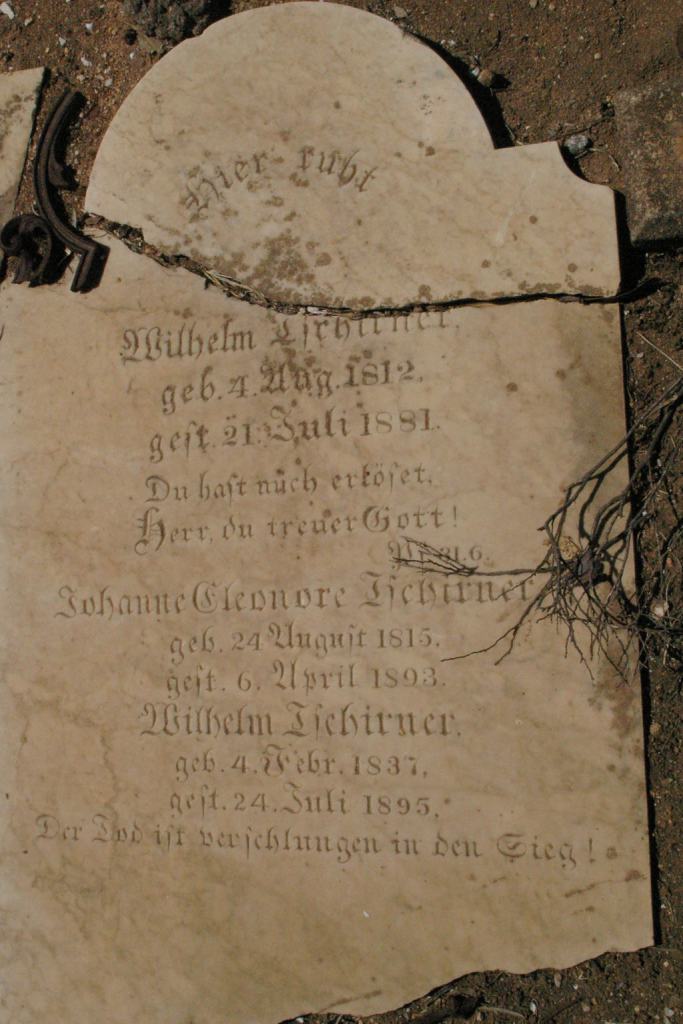 Hier ruht
Wilhelm Tschirner.
geb. 4. Aug. 1812.
gest. 21. Juli 1881.
Du hast mich erlöset,
Herr, du treuer Gott!
31.6.
Johanne Eleonore Tschirner
geb. 24 August 1815.
gest. 6. April 1893.
Wilhelm Tschirner.
geb. 4. Febr. 1837.
gest. 24. Juli 1895.
Der Tod ist verschlungen in den Sieg!